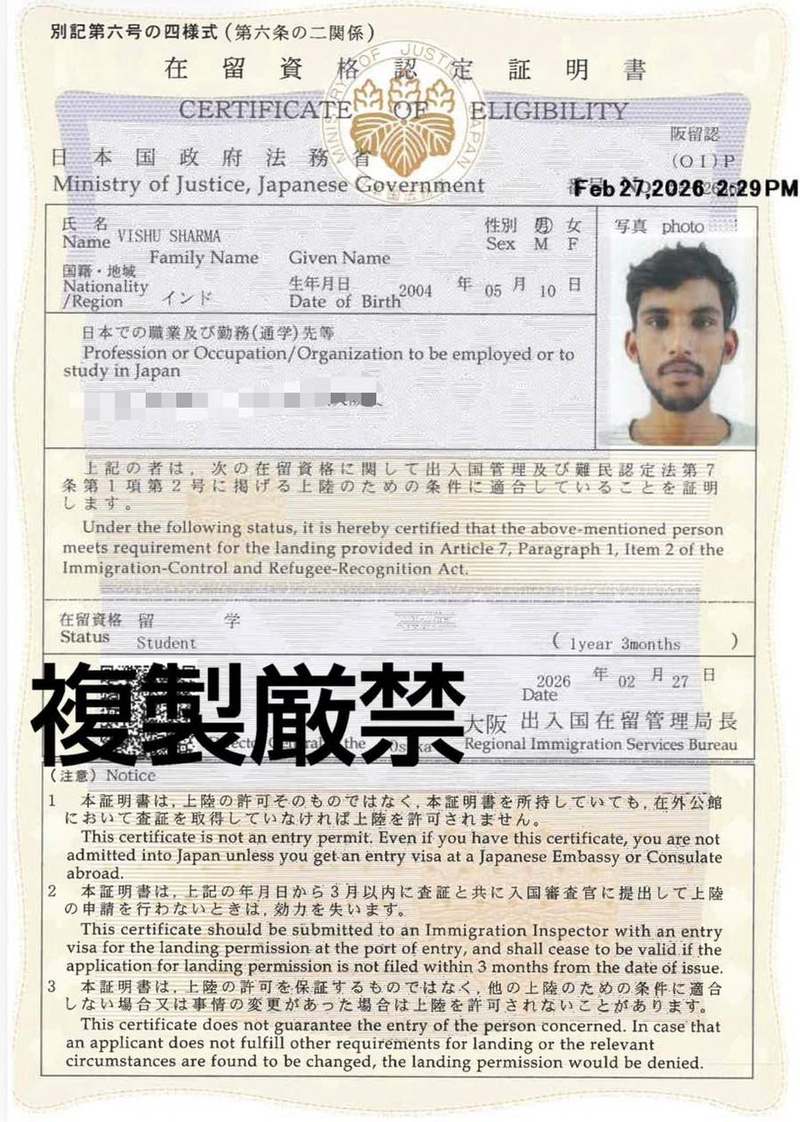 別記第六号の四様式(第六条の二関係)
在留資格認定証明書
CERTIFICATE OF ELIGIBILITY
MINISTRY OF JUSTICE, JAPAN
阪留認
日本国政府法務省
(OI)P
Ministry of Justice, Japanese Government
番号 No.
Feb 27,2026 2:29PM
氏名
Name VISHU SHARMA
性別 男 女
Sex M F
写真 photo
Family Name Given Name
国籍・地域
Nationality
/Region インド
生年月日
Date of Birth 2004 年 05 月 10 日
日本での職業及び勤務(通学)先等
Profession or Occupation/Organization to be employed or to
study in Japan
上記の者は、次の在留資格に関して出入国管理及び難民認定法第7
条第1項第2号に掲げる上陸のための条件に適合していることを証明
します。
Under the following status, it is hereby certified that the above-mentioned person
meets requirement for the landing provided in Article 7, Paragraph 1, Item 2 of the
Immigration-Control and Refugee-Recognition Act.
在留資格 留学
Status Student
( 1year 3months )
2026 年 02 月 27 日
Date
複製厳禁
大阪 出入国在留管理局長
Director General, the Osaka Regional Immigration Services Bureau
(注意) Notice
1 本証明書は,上陸の許可そのものではなく,本証明書を所持していても,在外公館
において査証を取得していなければ上陸を許可されません。
This certificate is not an entry permit. Even if you have this certificate, you are not
admitted into Japan unless you get an entry visa at a Japanese Embassy or Consulate
abroad.
2 本証明書は,上記の年月日から3月以内に査証と共に入国審査官に提出して上陸
の申請を行わないときは,効力を失います。
This certificate should be submitted to an Immigration Inspector with an entry
visa for the landing permission at the port of entry, and shall cease to be valid if the
application for landing permission is not filed within 3 months from the date of issue.
3 本証明書は,上陸の許可を保証するものではなく,他の上陸のための条件に適合
しない場合又は事情の変更があった場合は上陸を許可されないことがあります。
This certificate does not guarantee the entry of the person concerned. In case that
an applicant does not fulfill other requirements for landing or the relevant
circumstances are found to be changed, the landing permission would be denied.